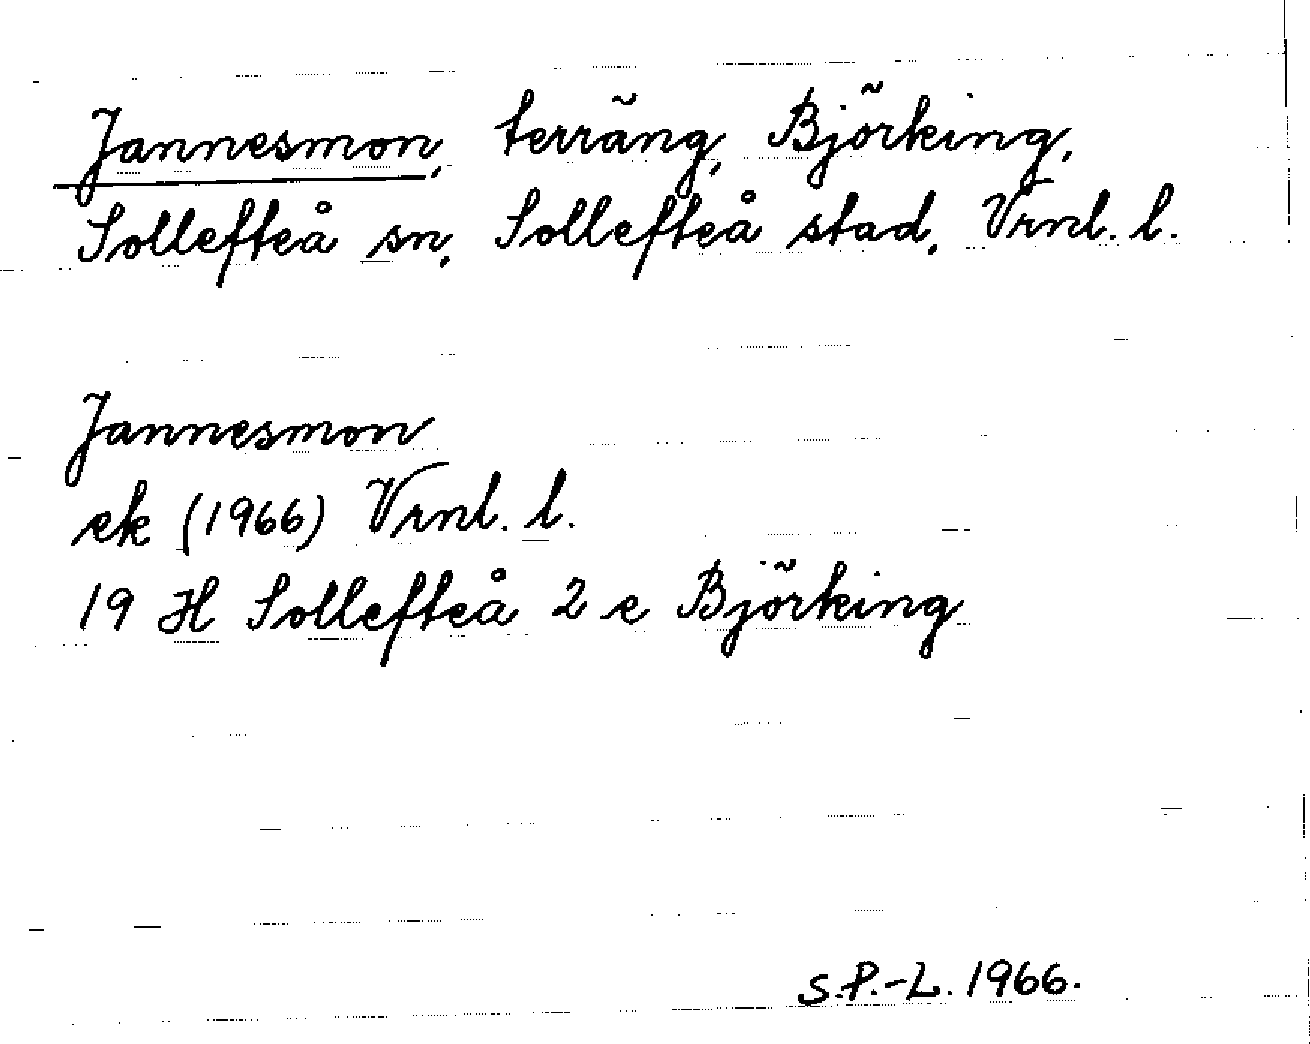 Jannesmon, terräng, Björking,
Sollefteå sn, Sollefteå stad, Vrnl. l.
Jannesmon
ek (1966) Vrnl. l.
19 H Sollefteå 2 e Björking
S.P.-L. 1966.